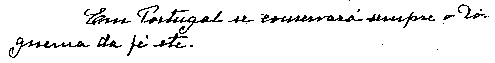 Em Portugal se conservará sempre o Do-
guema da fé etc.